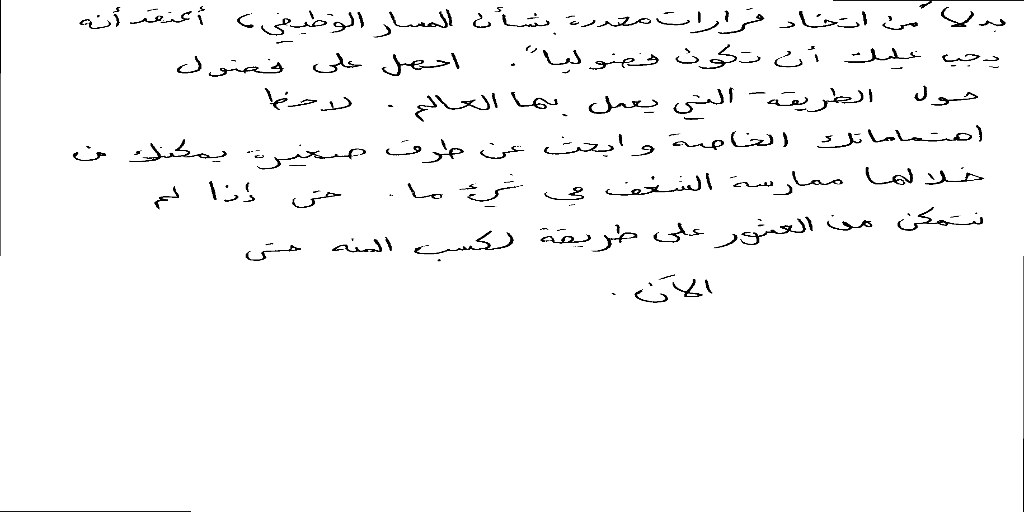 بدلاً من اتخاذ قرارات محددة بشأن المسار الوظيفي، أعتقد أنه
يجب عليك أن تكون فضولياً. احصل على فضول
حول الطريقة التي يعمل بها العالم. لاحظ
اهتماماتك الخاصة وابحث عن طرق صغيرة يمكنك من
خلالها ممارسة الشغف في شيء ما. حتى إذا لم
نتمكن من العثور على طريقة لكسب المنه حتى
الآن.